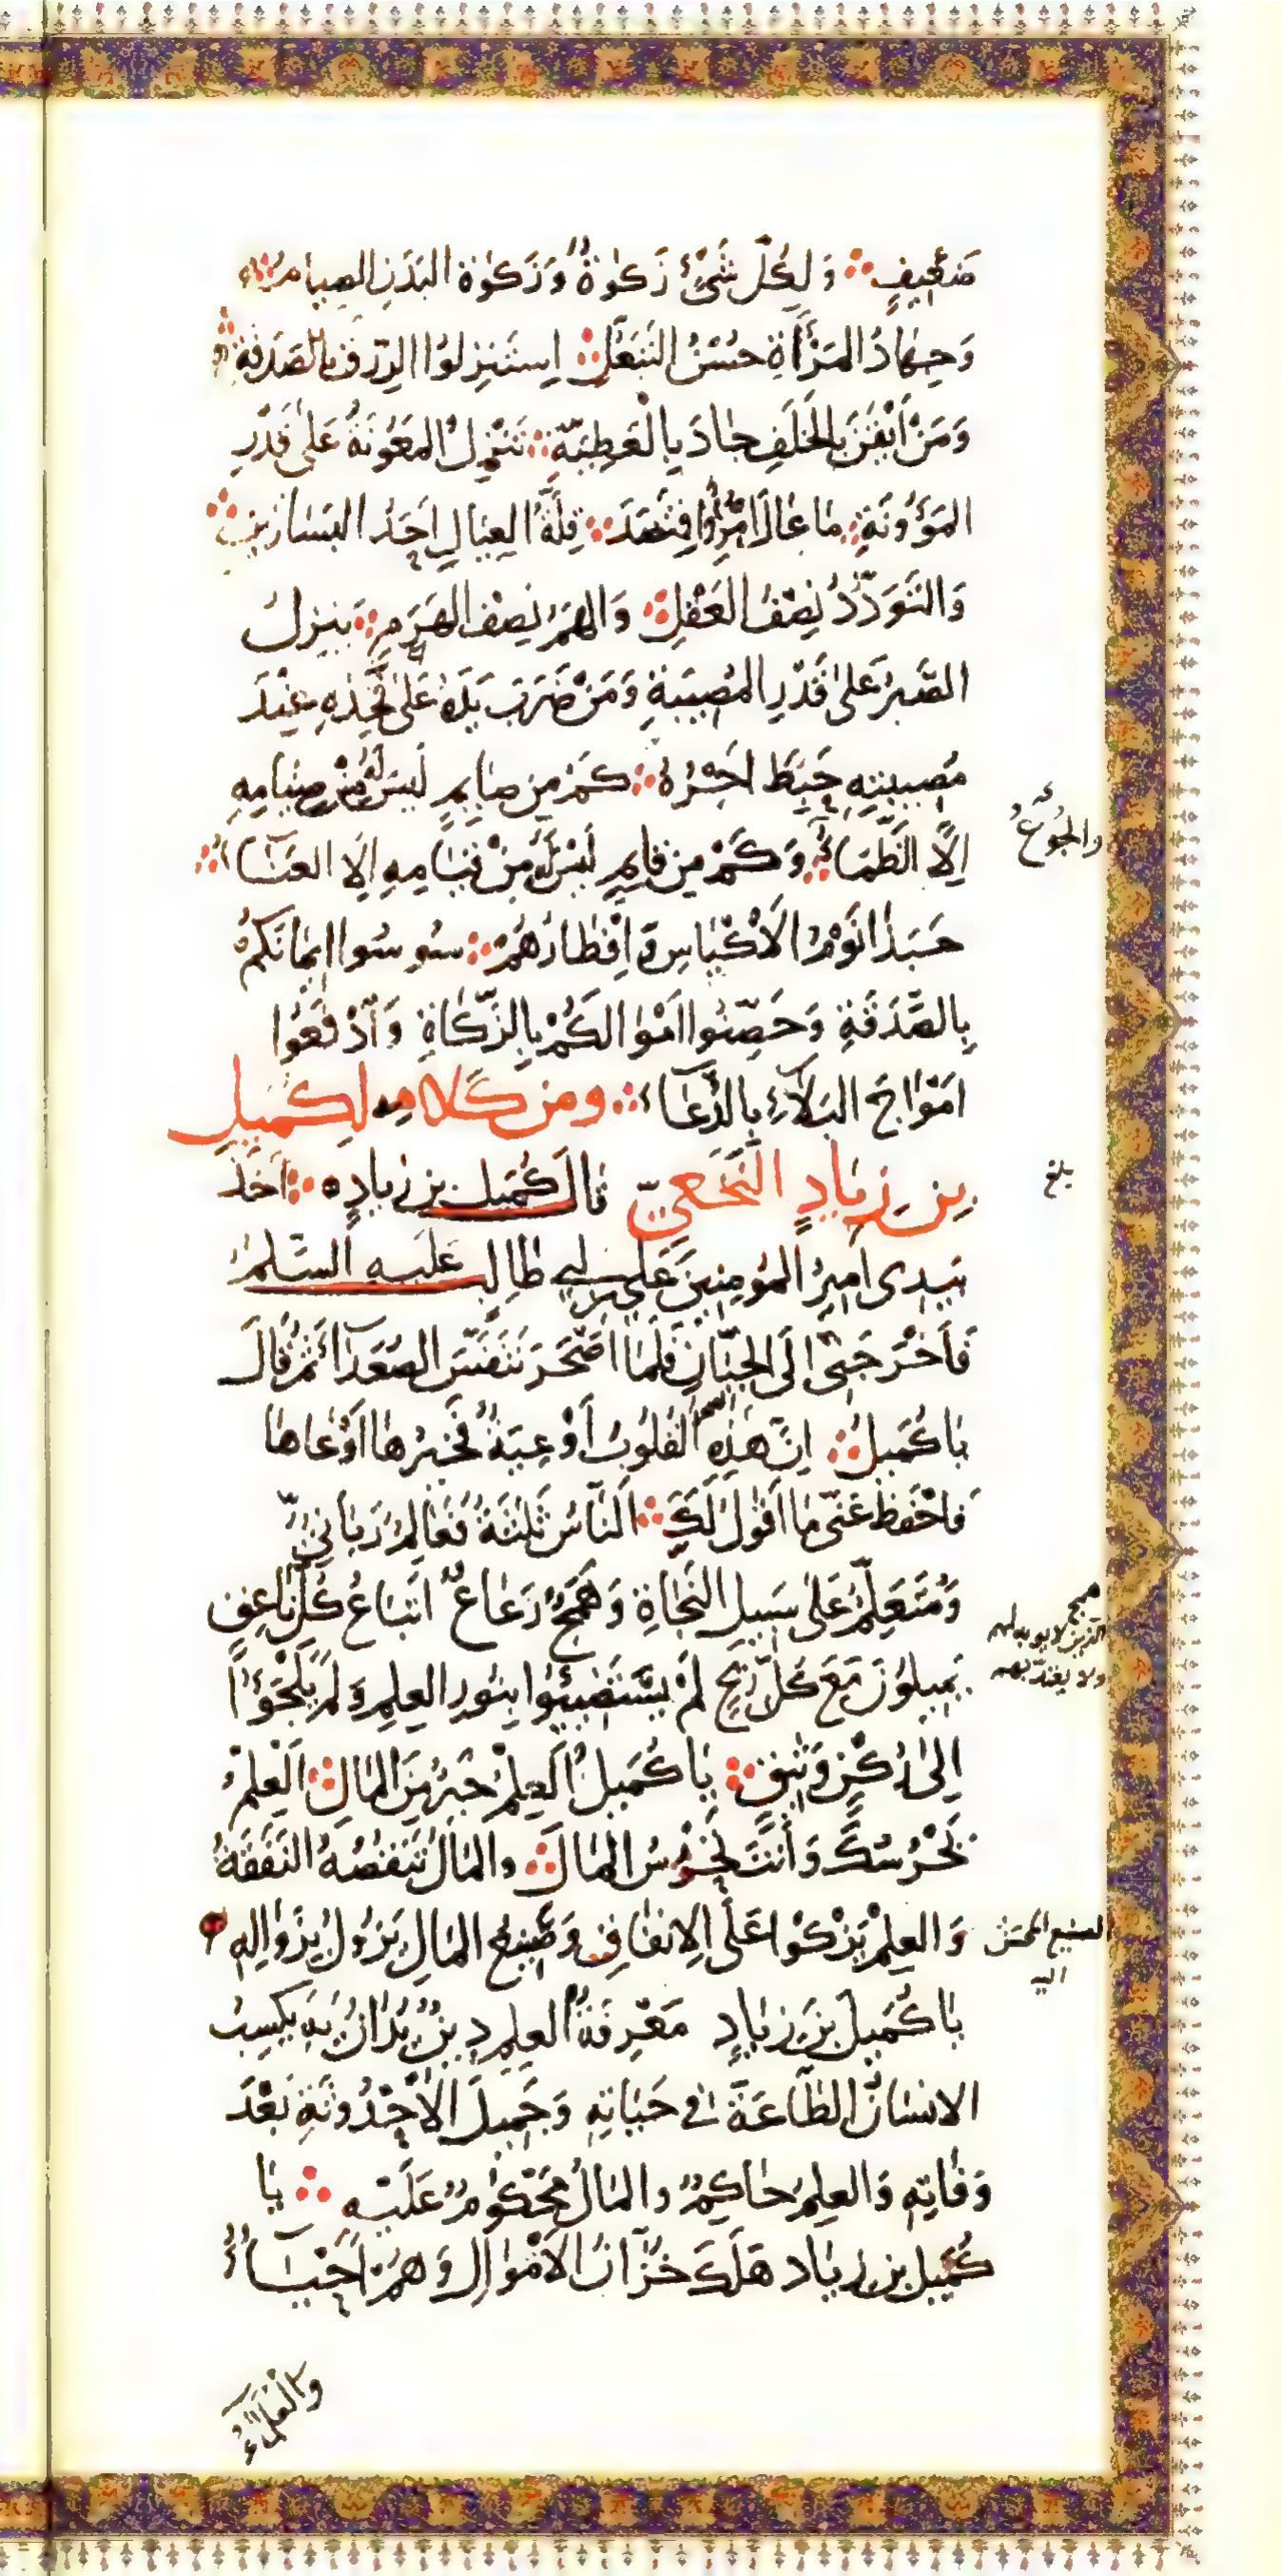 ضَعِيفٍ وَلِكُلِّ شَيْءٍ زَكوٰةٌ وَزَكوٰةُ البَدَنِ الصِيامُ
وَجِهَادُ المَرْأَةِ حُسْنُ التَبَعُّلِ اِسْتَنْزِلُوا الرِزقَ بِالصَدَقَةِ
وَمَنْ أَيْقَنَ بِالخَلَفِ جَادَ بِالْعَطِيَّةِ تَنْزِلُ المَعُونَةُ عَلى قَدْرِ
المَؤُونَةِ مَا عَالَ امْرُؤٌ اقتَصَدَ قِلَّةُ العِيَالِ اَحَدُ اليَسَارَيْنِ
وَالتَوَدُّدُ نِصْفُ العَقْلِ وَالهَمُّ نِصْفُ الهَرَمِ يَنْزِلُ
الصَّبرُ عَلى قَدْرِ المُصِيبَةِ وَمَنْ ضَرَبَ يَدَهُ عَلى فَخِذِهِ عِنْدَ
مُصِيبَتِهِ حَبِطَ اَجْرُهُ كَمْ مِن صَايِمٍ لَيسَ لَهُ مِنْ صِيَامِهِ
اِلَّا الظَّمَأُ وَكَمْ مِن قايِمٍ لَيْسَ لَهُ مِنْ قِيَامِهِ اِلَّا العَنَاءُ
وَالجُوعُ
حَبَّذَا نَوْمُ الاَكْيَاسِ وَاِفْطَارُهُمْ سُوسُوا ايمَانَكُمْ
بِالصَّدَقَةِ وَحَصِّنُوا اَمْوَالَكُمْ بِالزَّكَاةِ وَادْفَعُوا
اَمْوَاجَ البَلَاءِ بِالدُّعَاءِ ومن كَلامِه لِكُمَيلِ
بنِ زِيَادٍ النَخَعِيّ قالَ كُمَيل بن زيادٍ اَخَذَ
بلغ
بِيَدِى اَمِيرُ المؤمِنِينَ عَلي بن ابي طالِب عَلَيهِ السَّلَمُ
فَأَخْرَجَنِى اِلَى الجَبَّانِ فَلَمَّا اَصْحَرَ تَنَفَّسَ الصُعَدَآءَ ثُمَّ قَالَ
يا كُمَيلُ اِنَّ هٰذِهِ القُلُوبَ أَوْعِيَةٌ فَخَيرُهَا اَوْعَاهَا
فَاحْفَظْ عَنّى مَا اَقُولُ لَكَ اَلنَّاسُ ثَلٰثَةٌ فَعَالِمٌ رَبّانِيٌّ
وَمُتَعَلِّمٌ عَلَى سَبِيلِ النَجَاةِ وَهَمَجٌ رَعَاعٌ اَتبَاعُ كُلِّ نَاعِقٍ
همج
الذين لا يوبه لهم
ولا يعتدّ بهم
يَمِيلُونَ مَعَ كُلِّ رِيحٍ لَمْ يَسْتَضِيئُوا بِنُورِ العِلمِ وَلَمْ يَلْجَؤُا
اِلى رُكْنٍ وَثِيقٍ يَا كُمَيلُ اَلعِلْمُ خَيرٌ مِنَ المَالِ اَلْعِلْمُ
يَحْرُسُكَ وَأَنتَ تَحْرُسُ المَالَ والمَالُ تَنقُصُهُ النَفَقَةُ
وَالعِلْمُ يَزْكُوا عَلَى الاِنفَاقِ وَصَنِيعُ المَالِ يَزُولُ بِزَوَالِهِ
الصنيع المحسن
اليه
يَا كُمَيلَ بنَ زِيَادٍ مَعْرِفَةُ العِلمِ دِينٌ يُدَانُ بِهِ يَكسِبُ
الانسَانُ الطَّاعَةَ فِي حَيَاتِهِ وَجَمِيلَ الاُحْدُوثَةِ بَعْدَ
وَفَاتِهِ وَالعِلمُ حَاكِمٌ والمَالُ مَحْكُومٌ عَلَيْهِ يَا
كُمَيل بن زياد هَلَكَ خُزَّانُ الاَمْوَالِ وَهُمْ اَحْيَاءٌ
وَالعُلَمَاءُ